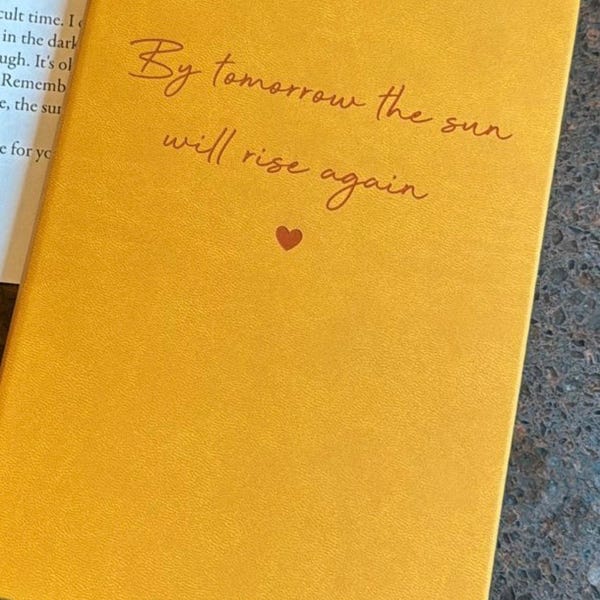 cult time. I
in the dark
ugh. It's
Rememb
e, the sun
e for
By tomorrow the sun
will rise again